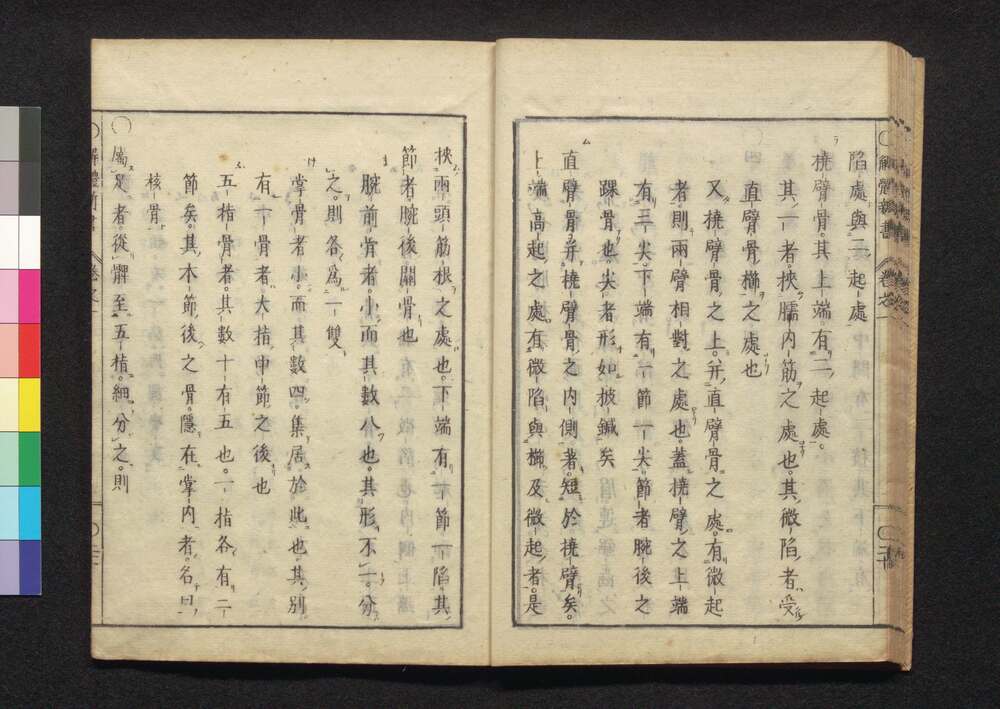 陷處與二起處
橈臂骨。其上端。有二起處。
其一者挾臑内筋之處也。其微陷者受
直臂骨櫛之處也
又橈臂骨之上。并直臂骨之處。有微起
者則兩臂相對之處也。蓋橈臂之上端
有三尖。下端有二節一尖。節者腕後之
踝骨也。尖者形如披鍼矣
直臂骨。并橈臂骨之内側者。短於橈臂矣。
上端高起之處。有微陷與櫛及微起者。是
挾兩頭筋根之處也。下端有一節一陷。其
節者。腕後關骨也
腕前骨者。小而其數八也。其形不一。分
之。則各爲一雙
掌骨者。小而其數四。集居於此也。其別
有一骨者。大指中節之後也
五指骨者。其數十有五也。一指各有二
節矣。其本節後之骨。隱在掌内者。名曰
核骨
屬足者。從髀至五指。細分之。則
解體新書
卷之一